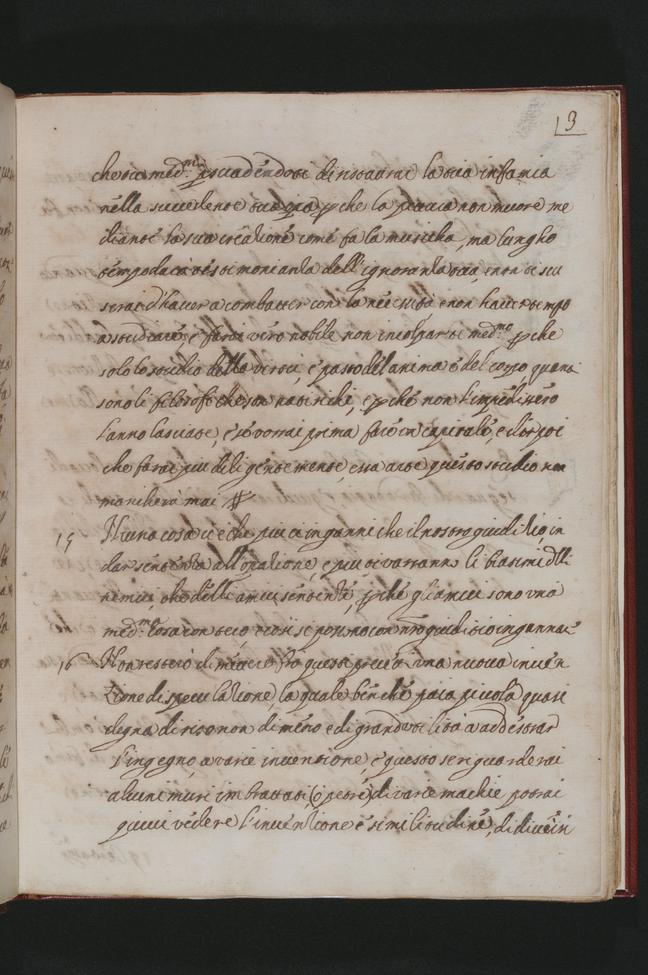 3
che tu med.mo p̱suadēdoti di ristaurar la tua infamia
nella succedente tua opa ꝑche la pittura non muore me
diante la sua creatione come fa la musicha, ma lungho
tempo darà testimonianza dell'ignoranza tua, non ti scu
serai d'hauer a combatter con la necessità e non hauer tempo
a studiare, e farti vero nobile non incolpar te med.mo ꝑche
solo lo studio della virtù è pasto dell'anima e del corpo quanti
sono li filosofi che son nati richi, e ꝑche non l'impedissero
l'anno lasciate, e se vorrai prima
che farai piu diligentemente, essa arte questo studio non
mancherà mai
15 Niuna cosa ci è che piu c'inganni che il nostro giuditio, in
dar sentenza all'opatione, e piu ti varranno li biasimi delli
nemici, che delli amici sentenze, ꝑche gli amici sono vna
med.ma cosa con teco, e così si possono con il tuo giuditio ingannar
16 Non resterò di mettere frà questi precetti vna nuoua inuen
tione di speculatione, la quale benche paia picciola, quasi
degna di riso non di meno e di grand'vtilità à addestrar
l'ingegno, a varie inuentione, e questo se riguarderai
alcuni muri imbrattati (ò petre) di varie machie potrai
quiui vedere l'inuentione e similitudine, di diuersi